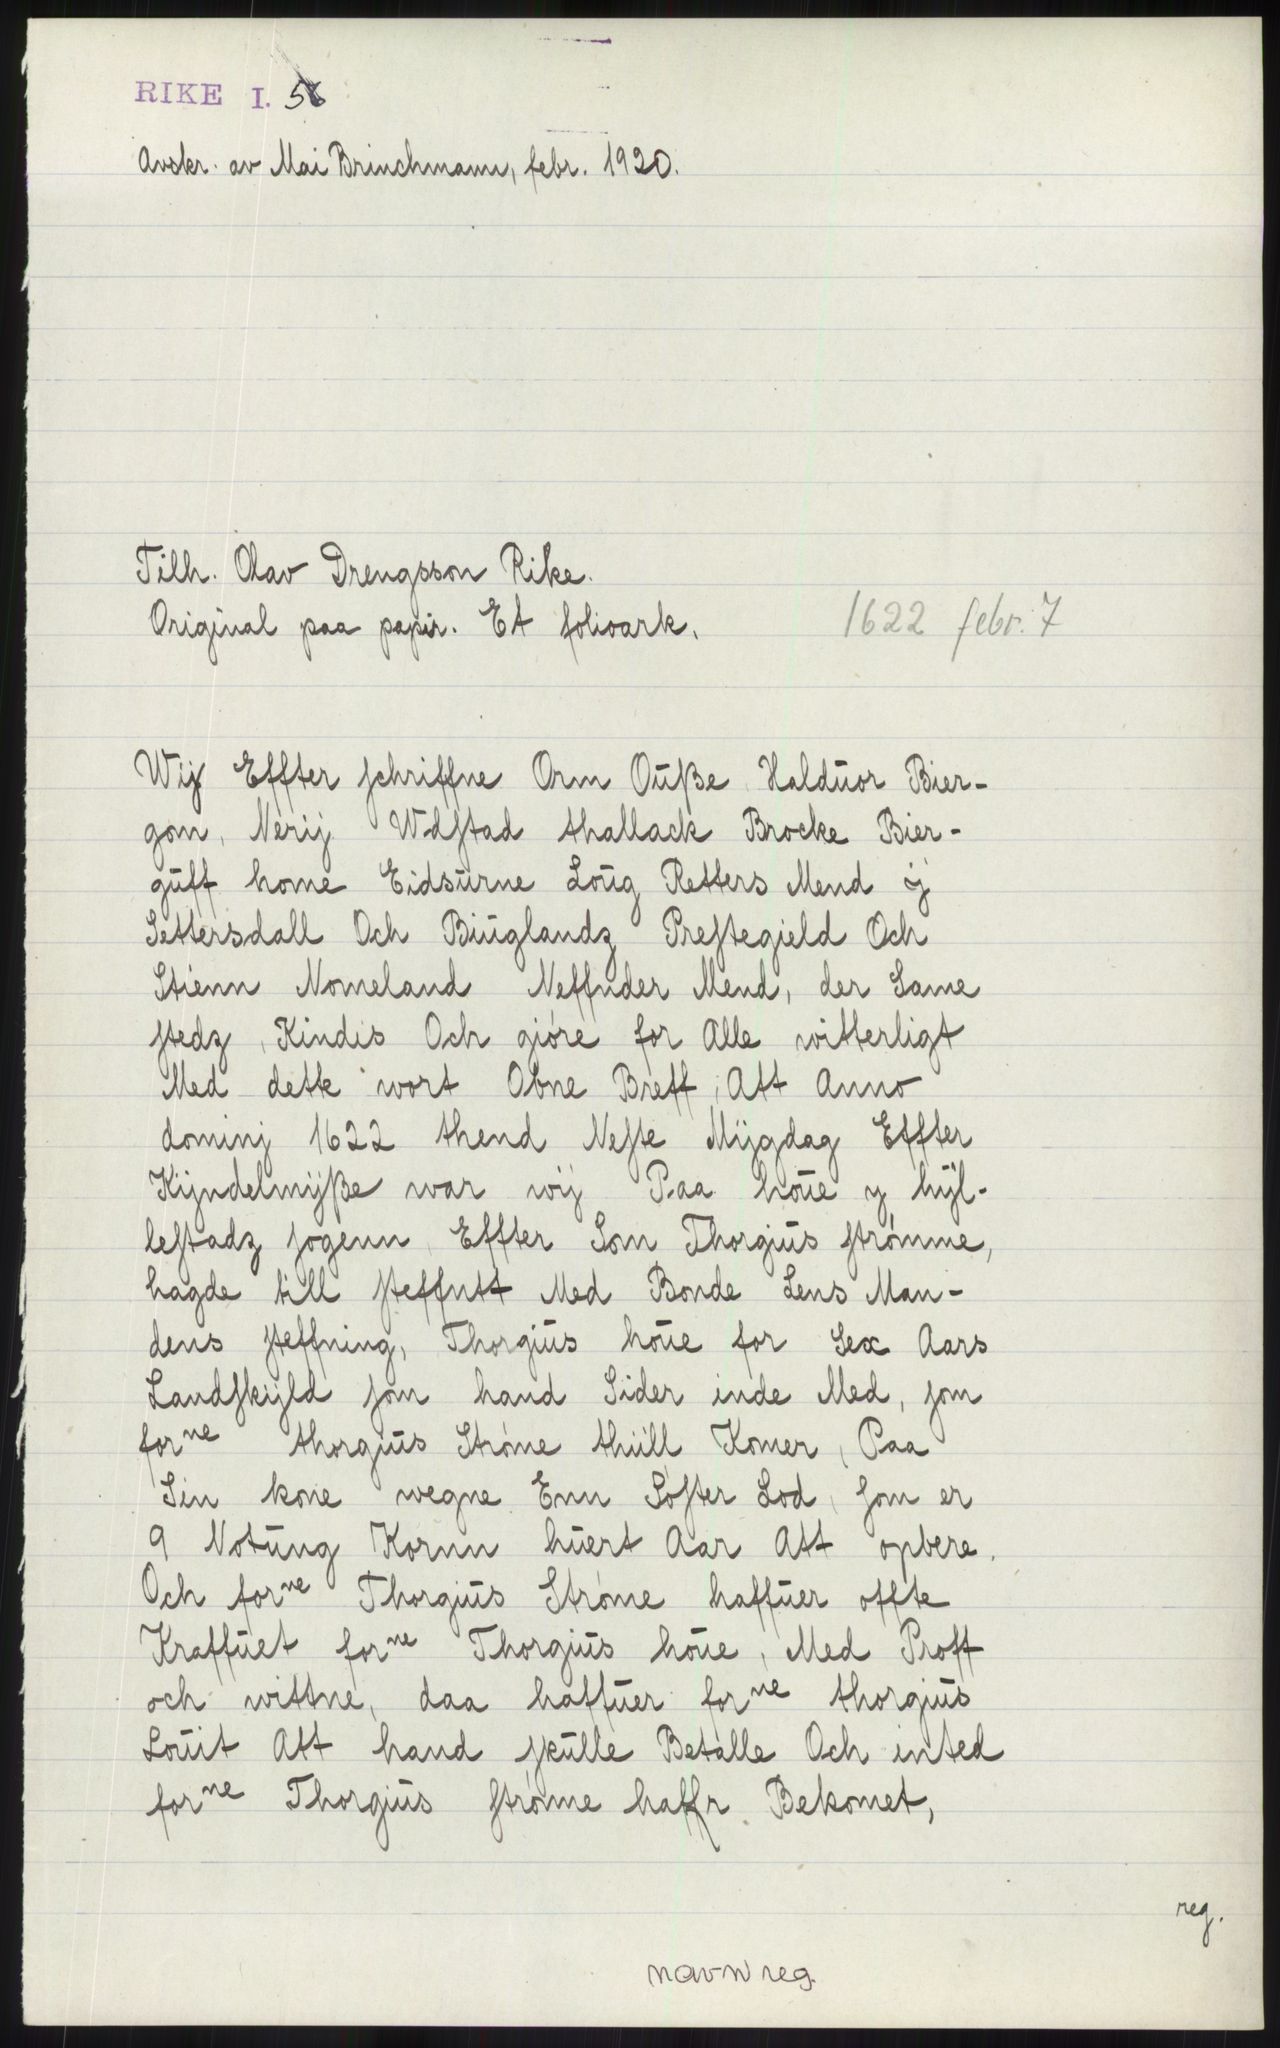 RIKE I. 5
Avskr. av Mai Brinchmann, febr. 1920.
Tilh. Olav Drengsson Rike.
Original paa papir. Et folioark.
1622 febr. 7
Wij Effter schriffne Orm Ouße Halduor Bier-
gom, Nerij Wdstad thallack Brocke Bier-
guff home Eidsurne Loug Retters Mend ÿ
Settersdall Och Biuglandz Prestegield Och
Stienn Nomeland Neffnder Mend, der Same
stedz, Kindis Och gióre for Alle witterligt
Med dette wort Obne Breff, Att Anno
dominj 1622 thend Neste Mijgdag Effter
Kijndelmijße war wij Paa houe y hÿl-
lestadz sogenn, Effter Som Thorgius strómme,
hagde till steffntt Med Bonde Lens Man-
dens steffning, Thorgius houe for Sex Aars
Landskÿld som hand Sider inde Med, som
forne thorgius Stróme thiill Komer, Paa
Sin kone wegne Enn Sóster Lod, som er
9 Notung Kornn huert Aar Att opbere.
Och forne Thorgius Stróme haffuer offte
Kraffuet forne Thorgius houe, Med Proff
och wittne, daa haffuer forne thorgius
Louit Att hand skulle Betalle Och inted
forne Thorgius strómme haffr Bekomet,
reg.
navnreg.